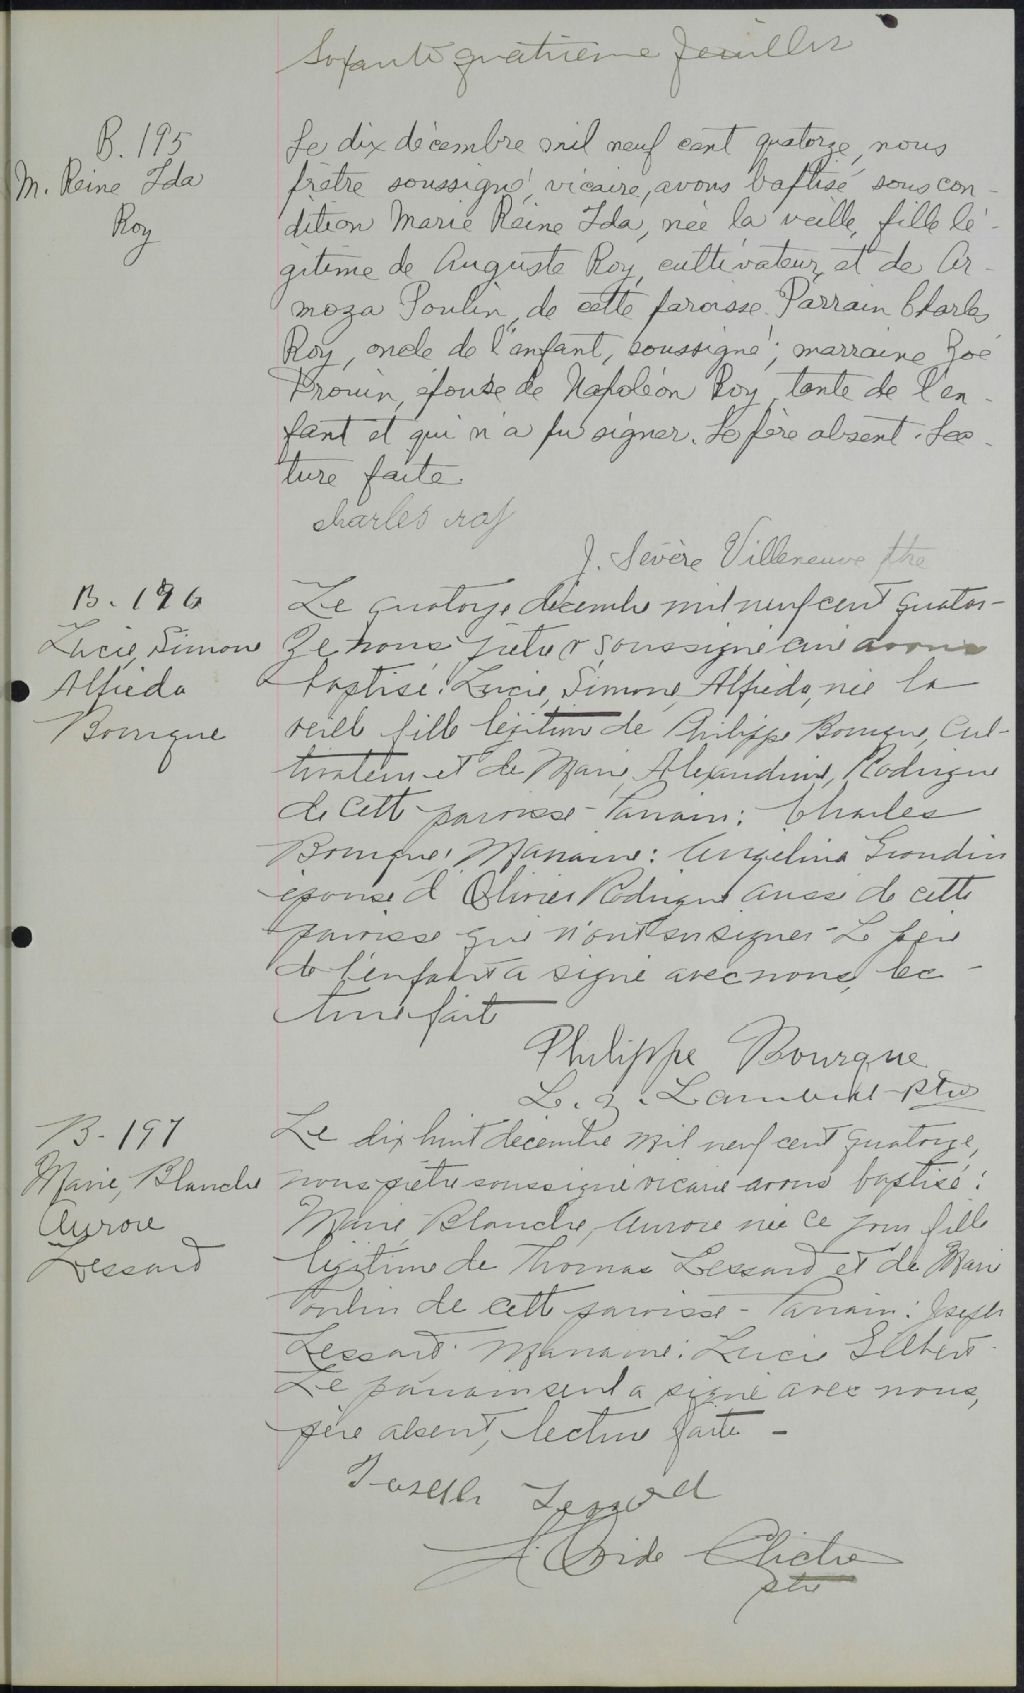 Soixante quatrième feuillet
B. 195
M. Reine Ida
Roy
Le dix décembre mil neuf cent quatorze, nous
prêtre soussigné, vicaire, avons baptisé sous con-
dition Marie Reine Ida, née la veille, fille lé-
gitime de Auguste Roy, cultivateur, et de Ar-
moza Poulin, de cette paroisse. Parrain Charles
Roy, oncle de l'enfant, soussigné; marraine Zoé
Drouin, épouse de Napoléon Roy, tante de l'en-
fant et qui n'a pu signer. Le père absent. Lec-
ture faite.
charles roy
J. Sévère Villeneuve ptre
B. 196
Lucie, Simone
Alfréda
Bourque
Le quatorze décembre mil neuf cent quator-
ze nous prêtre soussigné curé avons
baptisé: Lucie, Simone, Alfréda, née la
veille fille légitime de Philippe Bourque, cul-
tivateur et de Marie, Alexandrine, Rodrigue
de cette paroisse - Parrain: Charles
Bourque; Marraine: Angelina Grondin
épouse d'Olivier Rodrigue aussi de cette
paroisse qui n'ont su signer - Le père
de l'enfant a signé avec nous, lec-
ture faite
Philippe Bourque
L. Z. Lambert ptre
B- 197
Marie, Blanche
Aurore
Lessard
Le dix huit décembre mil neuf cent quatorze,
nous prêtre soussigné vicaire avons baptisé:
Marie, Blanche, Aurore née ce jour fille
légitime de Thomas Lessard et de Marie
Poulin de cette paroisse - Parrain: Joseph
Lessard. Marraine: Lucie Gilbert.
Le parrain seul a signé avec nous,
père absent, lecture faite -
Joseph Lessard
Ovide Cliche
ptre